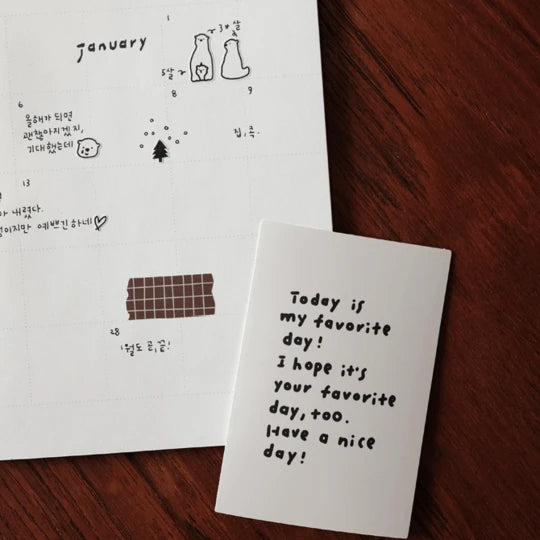 January
1
3*살
5살
6
8
9
올해가 되면
괜찮아지겠지,
기대했는데
집, 콕.
13
내렸다.
예쁘긴 하네
28
1월도 곧, 끝!
Today is
my favorite
day!
I hope it's
your favorite
day, too.
Have a nice
day!